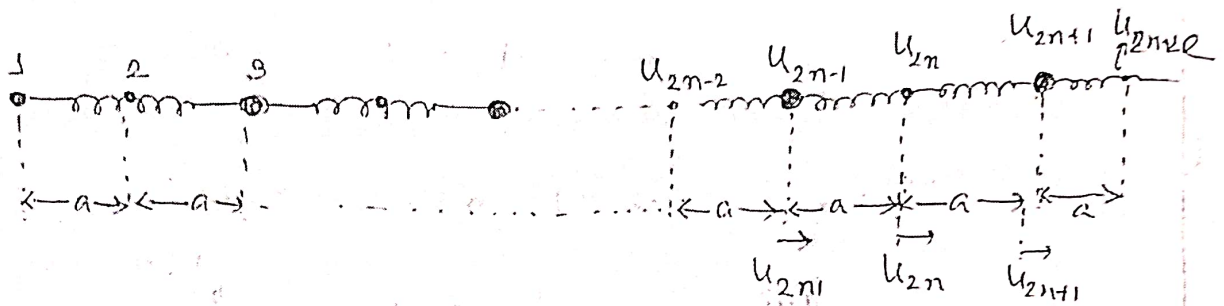 1 2 3 u₂ₙ₋₂ u₂ₙ₋₁ u₂ₙ u₂ₙ₊₁
a a a a a a
u₂ₙ₁ u₂ₙ u₂ₙ₊₁